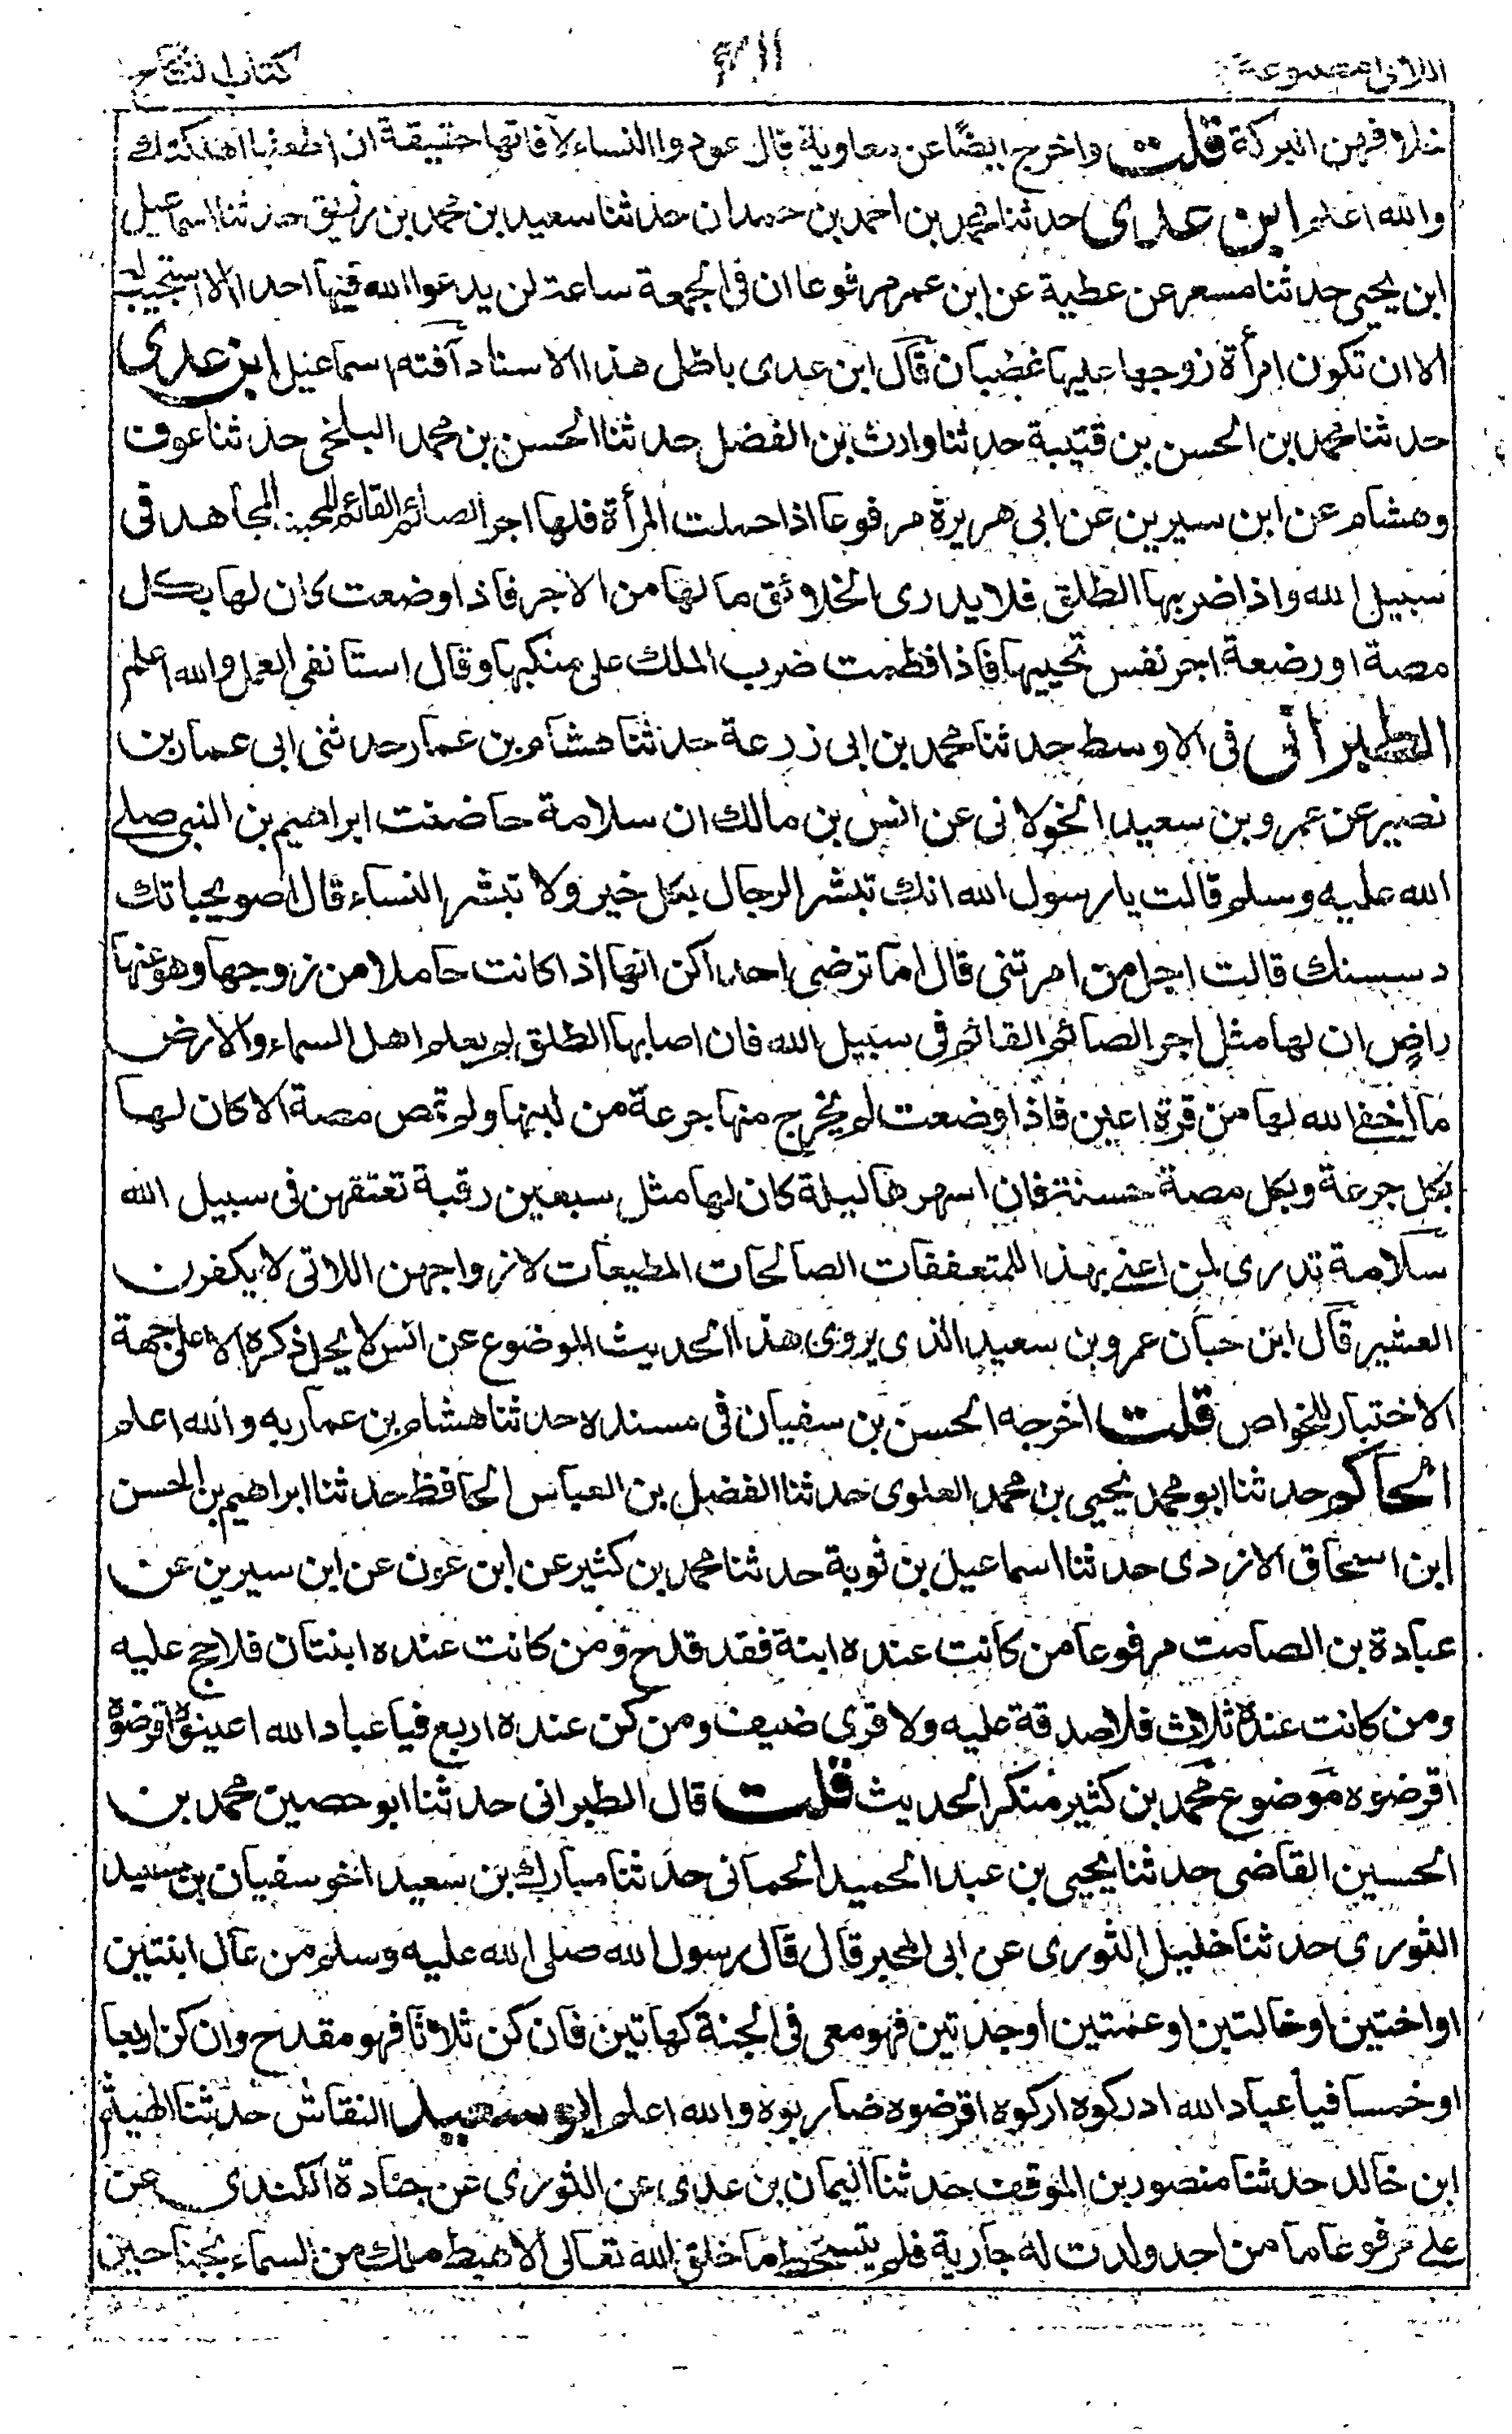 كتاب النكاح
خلافهن البركة قلت واخرج ايضا عن معاوية قال عودوا النساء لا فانها حقيقة ان اطعتها اهلكتك
والله اعلم ابن عدى حدثنا محمد بن احمد بن حمدان حدثنا سعيد بن محمد بن رزيق حدثنا اسماعيل
ابن يحيى حدثنا مسعر عن عطية عن ابن عمر مرفوعا ان فى الجمعة ساعة لن يدعوا الله فيها احد الا استجيب له
الا ان تكون امرأة زوجها عليها غضبان قال ابن عدى باطل هذا الاسناد آفته اسماعيل ابن عدى
حدثنا محمد بن الحسن بن قتيبة حدثنا وارث بن الفضل حدثنا الحسن بن محمد البلخى حدثنا عوف
وهشام عن ابن سيرين عن ابى هريرة مرفوعا اذا حملت المرأة فلها اجر الصائم القائم المخبت المجاهد فى
سبيل الله واذا ضربها الطلق فلا يدرى الخلائق ما لها من الاجر فاذا وضعت كان لها بكل
مصة او رضعة اجر نفس تحييها فاذا فطمت ضرب الملك على منكبها وقال استانفى العمل والله اعلم
الطبرانى فى الاوسط حدثنا محمد بن ابى زرعة حدثنا هشام بن عمار حدثنى ابى عمار بن
نصير عن عمرو بن سعيد الخولانى عن انس بن مالك ان سلامة حاضنت ابراهيم بن النبى صلے
الله عليه وسلم قالت يا رسول الله انك تبشر الرجال بكل خير ولا تبشر النساء قال اصويحباتك
دسسنك قالت اجل من امرتنى قال اما ترضى احداكن انها اذا كانت حاملا من زوجها وهو عنها
راضٍ ان لها مثل اجر الصائم القائم فى سبيل الله فان اصابها الطلق لم يعلم اهل السماء والارض
ما اخفے الله لها من قرة اعين فاذا وضعت لم يخرج منها جرعة من لبنها ولم تمص مصة الا كان لها
بكل جرعة وبكل مصة حسنة فان اسهرها ليلة كان لها مثل سبعين رقبة تعتقهن فى سبيل الله
سلامة تدرى لمن اعنے بهذا للمتعففات الصالحات المطيعات لازواجهن اللاتى لا يكفرن
العشير قال ابن حبان عمرو بن سعيد الذى يروى هذا الحديث الموضوع عن انس لا يحل ذكره الا على جهة
الاختبار للخواص قلت اخرجه الحسن بن سفيان فى مسنده حدثنا هشام بن عمار به والله اعلم
الحاكم حدثنا ابو محمد يحيى بن محمد العلوى حدثنا الفضل بن العباس الحافظ حدثنا ابراهيم بن الحسن
ابن اسحاق الازدى حدثنا اسماعيل بن ثوبة حدثنا محمد بن كثير عن ابن عون عن ابن سيرين عن
عبادة بن الصامت مرفوعا من كانت عنده ابنة فقد قدح ومن كانت عنده ابنتان فلا حج عليه
ومن كانت عنده ثلاث فلا صدقة عليه ولا قرى ضيف ومن كن عنده اربع فيا عباد الله اعينوه اقرضوه
اقرضوه موضوع محمد بن كثير منكر الحديث قلت قال الطبرانى حدثنا ابو حصين محمد بن
الحسين القاضى حدثنا يحيى بن عبد الحميد الحمانى حدثنا مبارك بن سعيد اخو سفيان بن سعيد
الثورى حدثنا خليل الثورى عن ابى المحبر قال قال رسول الله صلى الله عليه وسلم من عال ابنتين
او اختين او خالتين او عمتين او جدتين فهو معى فى الجنة كهاتين فان كن ثلاثا فهو مقدح وان كن اربعا
او خمسا فيا عباد الله ادركوه اركوه اقرضوه ضاربوه والله اعلم ابو سعيد النقاش حدثنا الهيثم
ابن خالد حدثنا منصور بن الموقف حدثنا اليمان بن عدى عن الثورى عن جنادة الكندى عن
على مرفوعا ما من احد ولدت له جارية فلم يتسخط ما خلق الله تعالى الا هبط ملك من السماء بجناحين